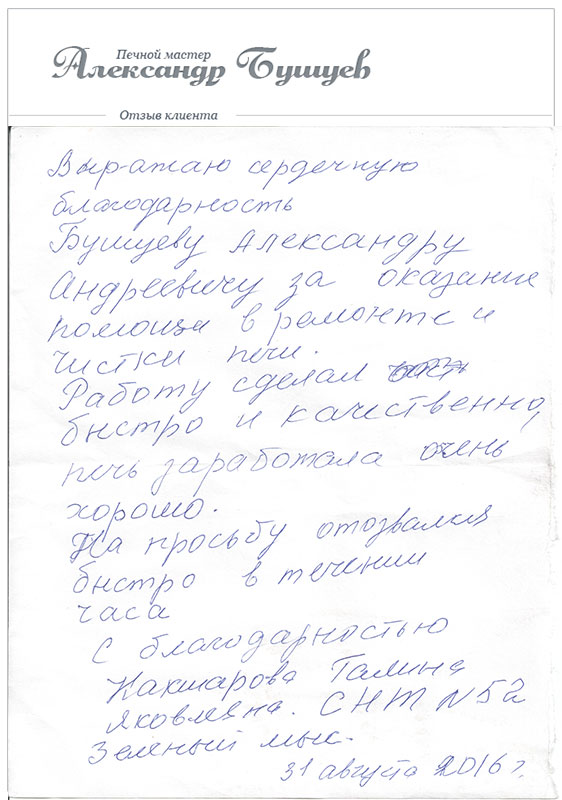 Печной мастер
Александр Бушуев
Отзыв клиента
Выражаю сердечную
благодарность
Бушуеву Александру
Андреевичу за оказание
помощи в ремонте и
чистки печи.
Работу сделал
быстро и качественно,
печь заработала очень
хорошо.
На просьбу отозвался
быстро в течении
часа
С благодарностью
Какшарова Галина
Яковлевна. СНТ №52
Зеленый мыс.
31 августа 2016 г.